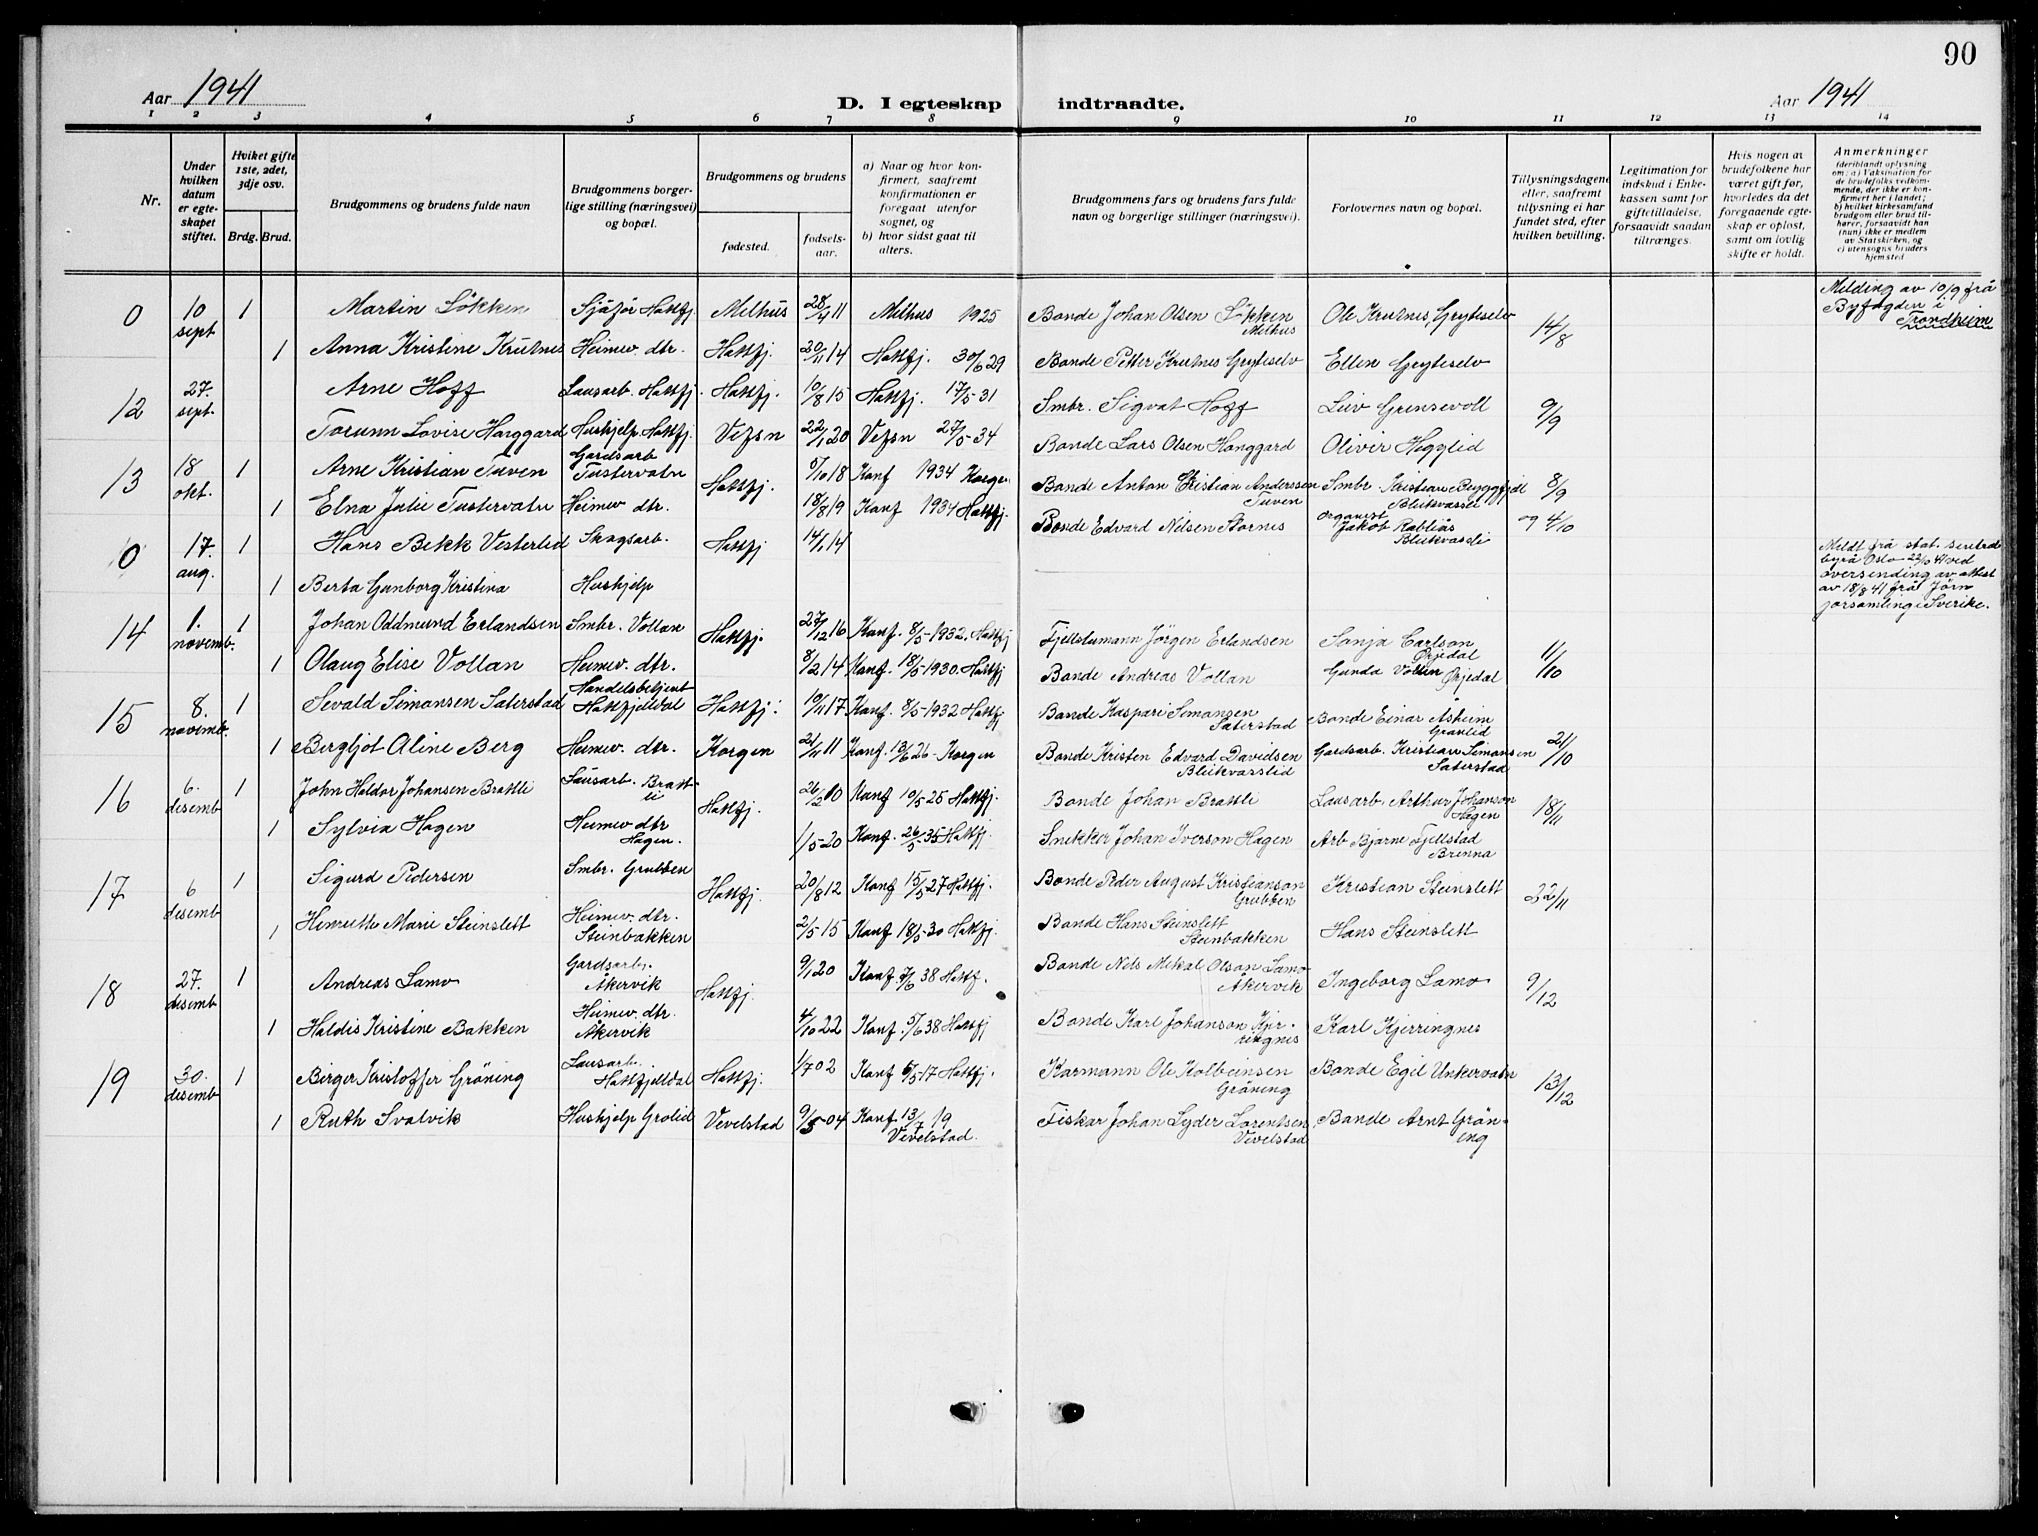 90
Aar 1941
D. I egteskap indtraadte.
Aar 1941
1 2 3 4 5 6 7 8 9 10 11 12 13 14
Nr.
Under hvilken datum er egteskapet stiftet.
Hviket gifte 1ste, 2det, 3dje osv.
Brdg. Brud.
Brudgommens og brudens fulde navn
Brudgommens borgerlige stilling (næringsvei) og bopæl.
Brudgommens og brudens
fødested.
fødselsaar.
a) Naar og hvor konfirmert, saafremt konfirmationen er foregaat utenfor sognet, og
b) hvor sidst gaat til alters.
Brudgommens fars og brudens fars fulde navn og borgerlige stillinger (næringsvei).
Forlovernes navn og bopæl.
Tillysningsdagene eller, saafremt tillysning ei har fundet sted, efter hvilken bevilling.
Legitimation for indskud i Enkekassen samt for giftetilladelse, forsaavidt saadan tiltrænges.
Hvis nogen av brudefolkene har været gift før, hvorledes da det foregaaende egteskap er opløst, samt om lovlig skifte er holdt.
Anmerkninger
(deriblandt oplysning om: a) Vaksination for de brudefolks vedkommende, der ikke er konfirmert her i landet; b) hvilket kirkesamfund brudgom eller brud tilhører, forsaavidt han (hun) ikke er medlem av Statskirken, og c) utensogns bruders hjemsted
0 10 sept 1 Martin Løkken Sjåfør Hattfj. Melhus 28/4 11 Melhus 1925 Bonde Johan Olsen Løkken Melhus Ole Krutnes, Gryteselv 14/8 Melding av 10/9 frå Byfogden i Trondheim
1 Anna Kristine Krutnes Heimev. dtr. Hattfj. 20/11 14 Hattfj. 30/6 29 Bonde Petter Krutnes Gryteselv Ellen Gryteselv
12 27. sept. Arne Hoff Lausarb. Hattfj. Hattfj. 10/8 15 Hattfj. 17/5-31 Smbr. Sigvat Hoff Leiv Grensevoll 9/9
Torunn Lovise Hanggard Hushjelp. Hattfj. Vefsn 22/1 20 Vefsn 27/5-34 Bonde Lars Olsen Hanggard Oliver
13 18 okt. 1 Arne Kristian Tuven Gardsarb Tustervatn Hattfj. 5/10 18 Konf 1934 Korgen Bonde Anton Cristian Anderssen Tuven Smbr. Kristian Bryggfjell Bleikvassli 8/9
1 Elna Julie Tustervatn Heimev dtr. 18/8 19 Konf 1934 Hattfj. Bonde Edvard Nilsen Stornes Organist Jakob Rabliås Bleikvassli og 4/10
0 17. aug. 1 Hans Bekk Vesterlid Skogsarb. Hattfj 14/1 14 Meldt frå stat. sentralbyrå Oslo 22/10 41 ved oversending av attest av 18/8 41 frå Jørn forsamling i Sverike.
1 Berta Gunborg Kristina Hushjelp
14 1. novemb. 1 Johan Oddmund Erlandsen Smbr. Vollan Hattfj. 27/12 16 Konf. 8/5-1932. Hattfj Fjellstumann Jørgen Erlandsen Sonja Carlson Ørjedal 11/10
1 Olaug Elise Vollan Heimev. dtr. 8/2 14 Konf. 18/5-1930. Hattfj Bonde Andreas Vollan Gunda Vollan Ørjedal
15 8. novemb. 1 Sevald Simonsen Sæterstad Handelsbetjent Hattfjelldal Hattfj. 10/11 17 Konf. 8/5-1932 Hattfj Bonde Kaspari Simonsen Sæterstad Bonde Einar Åsheim Granlid
1 Bergljot Aline Berg Heimev. dtr. Korgen 21/11 11 Konf. 13/6 26 - Korgen Bonde Kristen Edvard Davidsen Bleikvasslid Gardsarb. Kristian Simonsen Sæterstad 21/10
16 6. desemb 1 John Haldor Johansen Brattli Lausarb. Brattli Hattfj. 26/2 10 Konf 10/5-25 Hattfj. Bonde Johan Brattli Lausarb. Arthur Johanson Hagen 18/11
1 Sylvia Hagen Heimev dtr Hagen. 1/5-20 Konf. 26/5-35 Hattfj. Snekker Johan Iverson Hagen Arb Bjarne Fjellstad Brenna
17 6 desemb 1 Sigurd Pedersen Smbr. Grubben Hattfj. 20/8 12 Konf 15/5 27 Hattfj. Bonde Peder August Kristianson Grubben Kristian Steinslett 22/11
1 Henrette Marie Steinslett Heimev. dtr. Steinbakken 2/5-15 Konf 18/5-30 Hattfj. Bonde Hans Steinslett Steinbakken Hans Steinslett
18 27. desemb 1 Andreas Lamo Gardsarb. Åkervik Hattfj. 9/1 20 Konf. 5/6 38 Hattf. Bonde Nils Mikal Olson Lamo Åkervik Ingeborg Lamo 9/12
1 Haldis Kristine Bakken Heimev. dtr. Åkervik 4/10 22 Konf. 5/6 38 Hattfj Bonde Karl Johanson Kjerringnes Karl Kjerringnes
19 30. desemb 1 Birger Kristoffer Grøning Lausarb. Hattfjelldal Hattfj. 1/7 02 Konf 6/5-17 Hattfj. Karmann Ole Kolbeinsen Grøning Bonde Egil Unkervatn 13/12
1 Ruth Svalvik Hushjelp Grolid Vevelstad 9/5-04 Konf 13/7 19 Vevelstad. Fiskar Johan Lyder Lorentsen Vevelstad Bonde Arnt Grøning